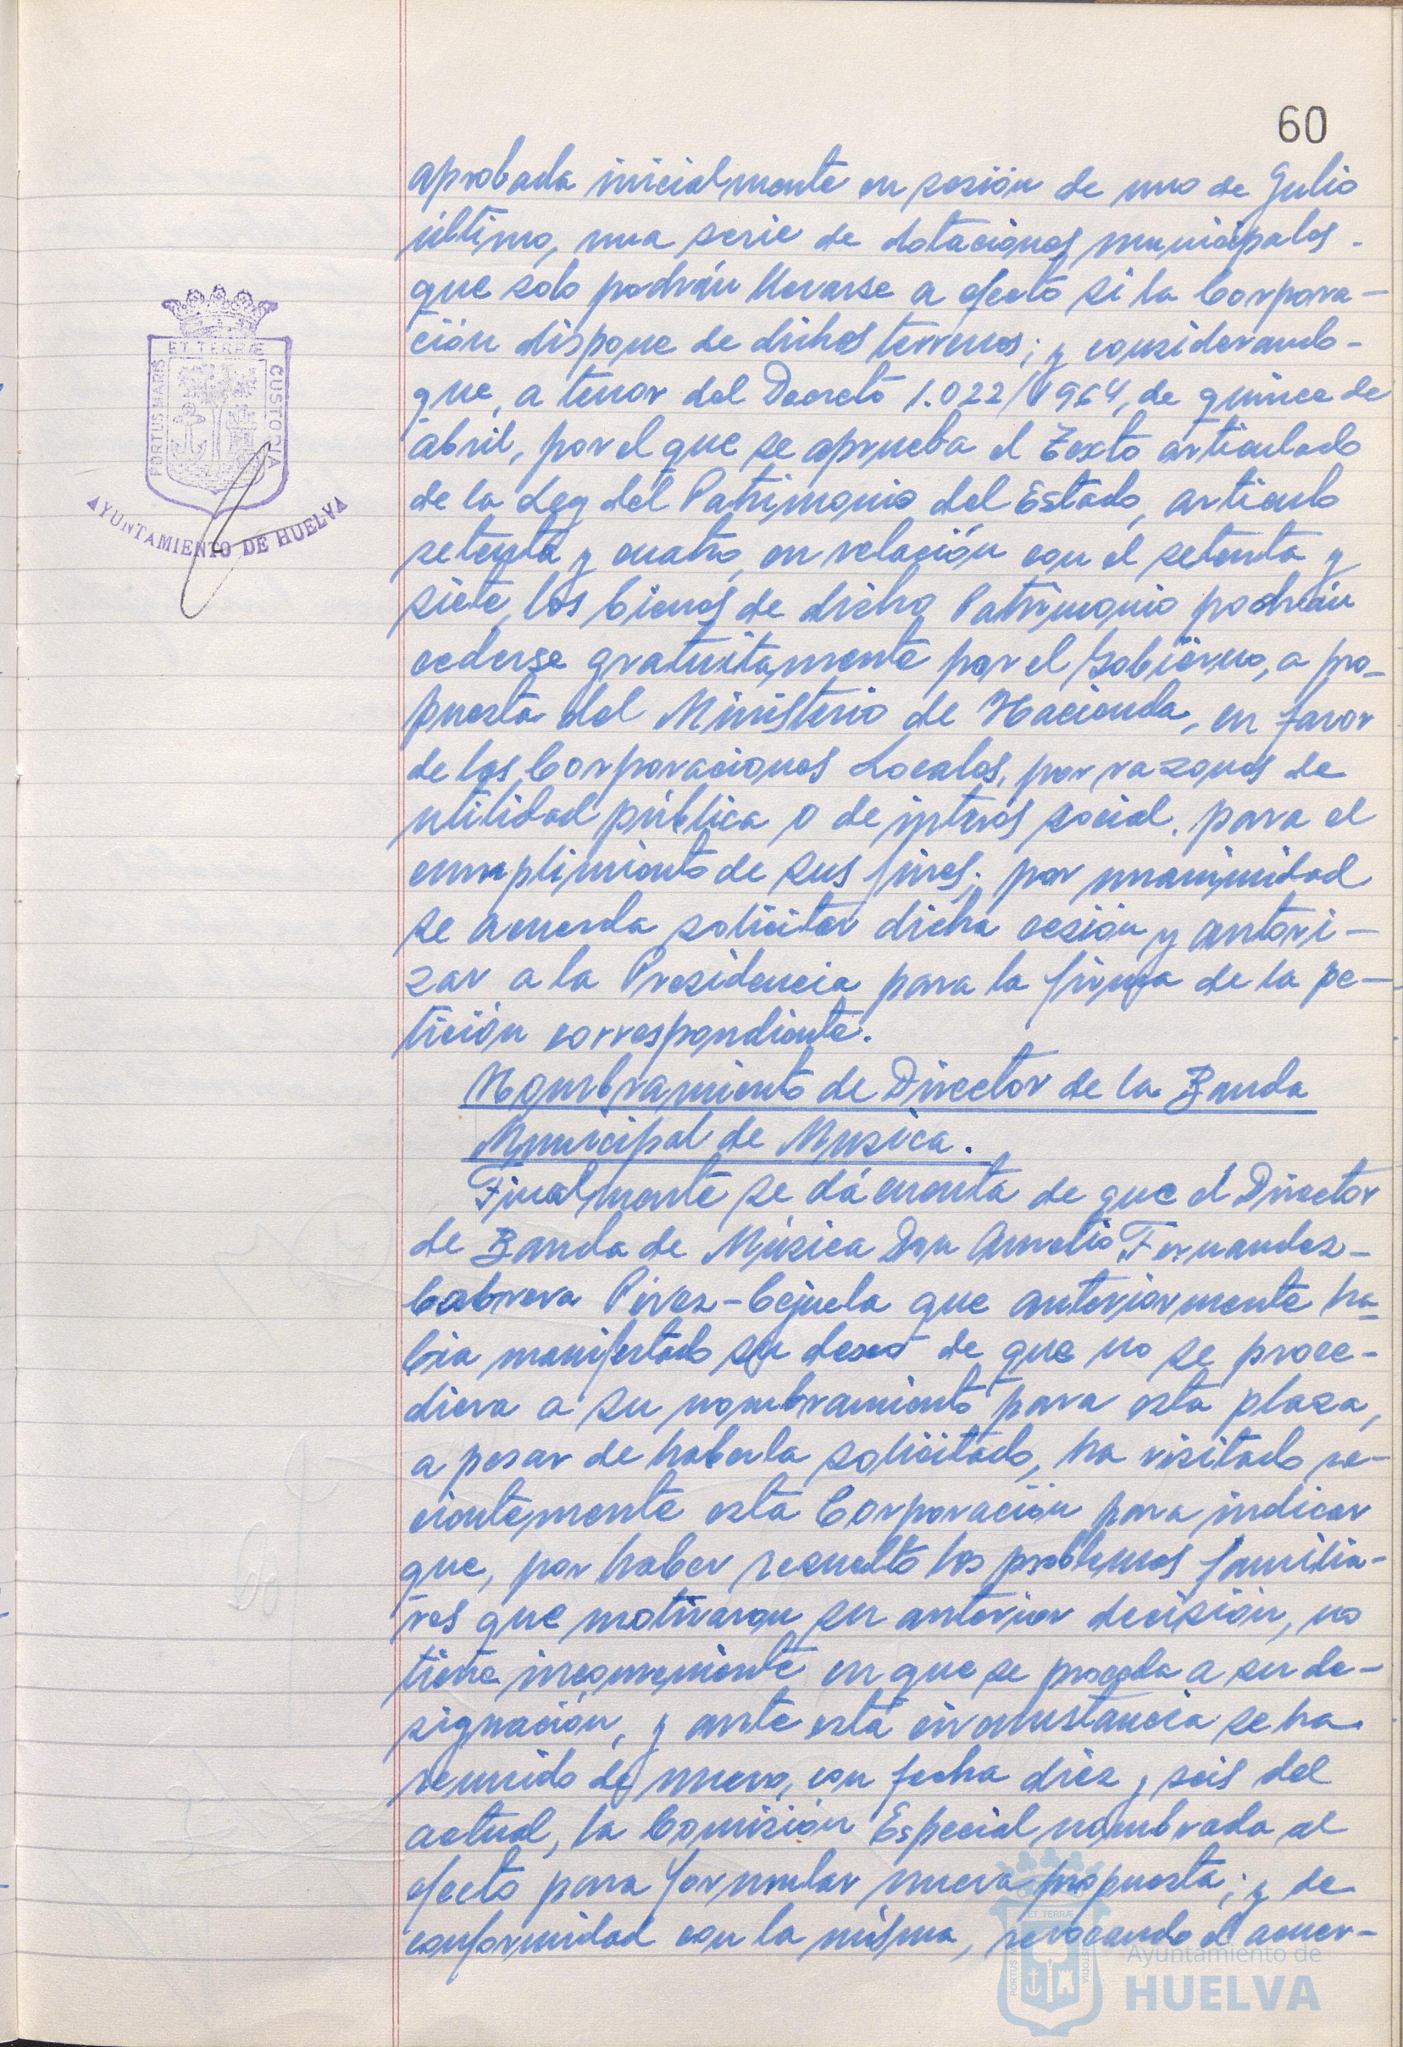 60
aprobada inicialmente en sesión de uno de Julio
último, una serie de dotaciones municipales
que solo podrán llevarse a efecto si la Corpora-
ción dispone de dichos terrenos; y considerando
que, a tenor del Decreto 1.022/1964, de quince de
abril, por el que se aprueba el Texto articulado
de la Ley del Patrimonio del Estado, artículo
setenta y cuatro, en relación con el setenta y
siete, los bienes de dicho Patrimonio podrán
cederse gratuitamente por el Gobierno, a pro-
puesta del Ministerio de Hacienda, en favor
de las Corporaciones Locales, por razones de
utilidad pública o de interés social, para el
cumplimiento de sus fines; por unanimidad
se acuerda solicitar dicha cesión y autori-
zar a la Presidencia para la firma de la pe-
tición correspondiente.
Nombramiento de Director de la Banda
Municipal de Musica.
Finalmente se dá cuenta de que el Director
de Banda de Música Don Aurelio Fernandez-
Cabrera Pérez-Cejuela que anteriormente ha-
bia manifestado su deseo de que no se proce-
diera a su nombramiento para esta plaza,
a pesar de haberla solicitado, ha visitado re-
cientemente esta Corporación para indicar
que, por haber resuelto los problemas familia-
res que motivaron su anterior decisión, no
tiene inconveniente en que se proceda a su de-
signación, y ante esta circunstancia se ha
reunido de nuevo, con fecha diez y seis del
actual, la Comisión Especial nombrada al
efecto para formular nueva propuesta; y de
conformidad con la misma, revocando el acuer-
PORTUS MARIS ET TERRÆ CUSTODIA
AYUNTAMIENTO DE HUELVA
Ayuntamiento de
HUELVA